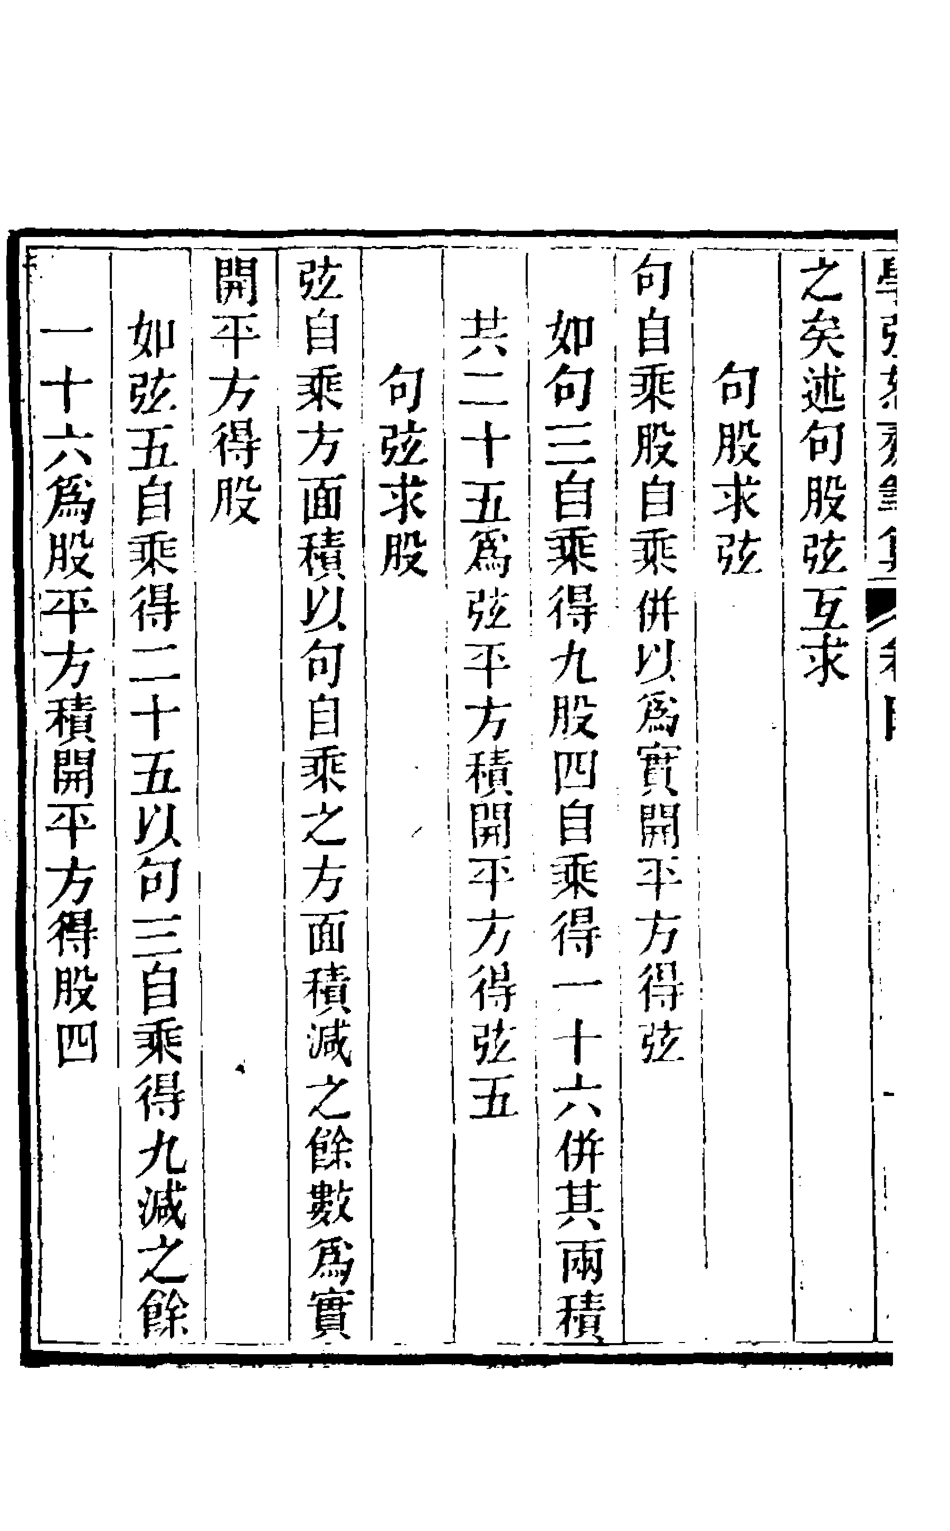 之矣述句股弦互求
句股求弦
句自乘股自乘併以爲實開平方得弦
如句三自乘得九股四自乘得一十六併其兩積
共二十五爲弦平方積開平方得弦五
句弦求股
弦自乘方面積以句自乘之方面積減之餘數爲實
開平方得股
如弦五自乘得二十五以句三自乘得九減之餘
一十六爲股平方積開平方得股四